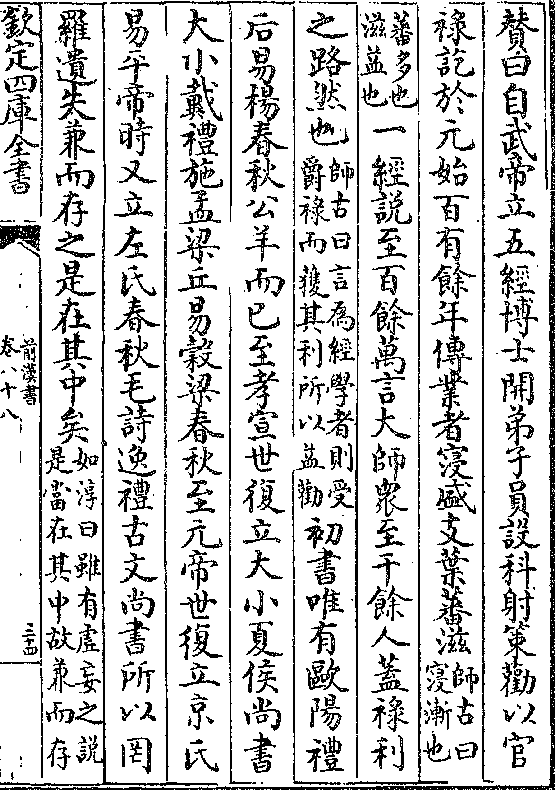 賛曰自武帝立五經博士開弟子員設科射策勸以官
祿訖於元始百有餘年傳業者寖盛支葉蕃滋師古曰寖漸也
蕃多也滋益也一經說至百餘萬言大師衆至千餘人蓋祿利
之路然也師古曰言為經學者則受爵祿而獲其利所以益勸初書唯有歐陽禮
后易楊春秋公羊而已至孝宣世復立大小夏侯尚書
大小戴禮施孟梁丘易穀梁春秋至元帝世復立京氏
易平帝時又立左氏春秋毛詩逸禮古文尚書所以罔
羅遺失兼而存之是在其中矣如淳曰雖有虛妄之說是當在其中故兼而存
欽定四庫全書
前漢書
卷八十八
三十四